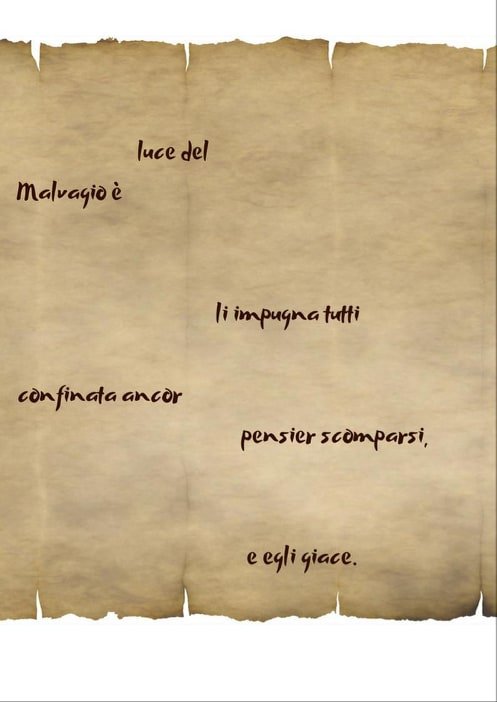 luce del
Malvagio è
li impugna tutti
confinata ancor
pensier scomparsi,
e egli giace.